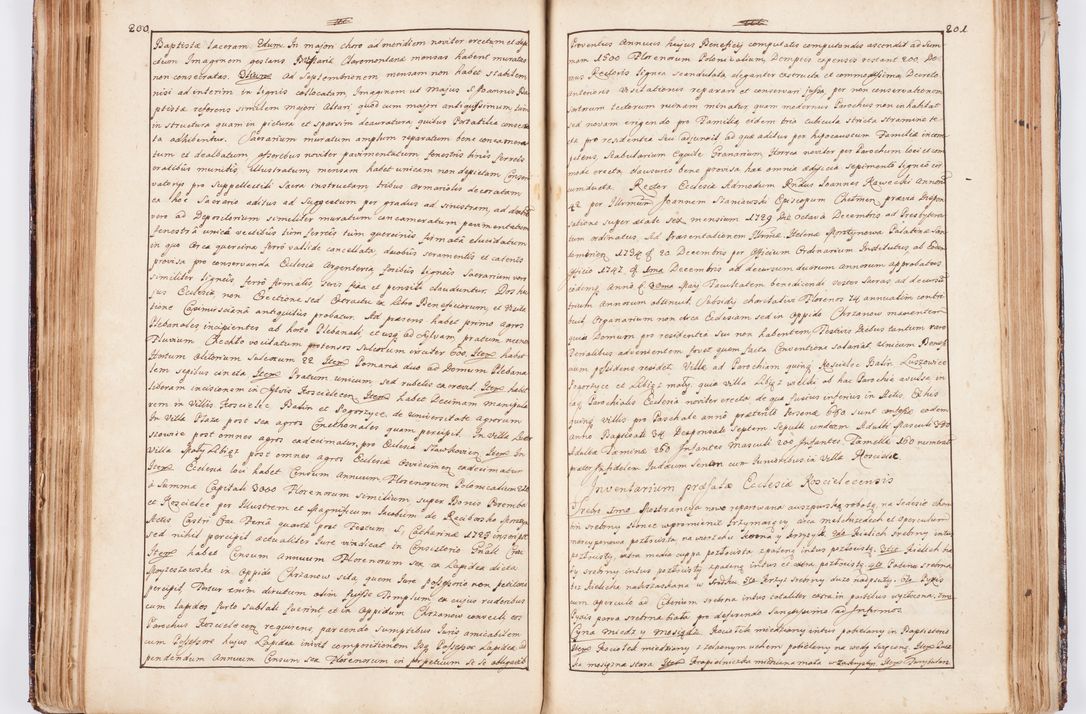 200
Baptistæ laceram. Edum. In majori choro ad meridiem noviter erectum et depi
ctum Imaginem gestans B. Mariæ Claromontanæ mensas habent muratas
non consecratas. Ad Septemtrionem mensam non habet stabilem
nisi ad interim in lignis collocatam, Imaginem ut majus S. Joannis Ba
ptistæ referens similem majori Altari quod cum majori antiquissimum, tum
in structura quam in pictura et sparsim deauratura, quibus Portatilia consecra
ta adhibentur. Sacrarium muratum amplum reparatum bene concamera
tum et dealbatum asseribus noviter pavimentatum fenestris binis ferreis
cratibus munitis, illustratum, mensam habet unicam non depictam Conser
vatoris pro Suppellectili Sacra instructam tribus armariolis decoratam
ex hoc Sacrario aditus ad Suggestum per gradus ad sinistram, ad dextram
vero ad Depositorium similiter muratum concameratum pavimentatum
fenestra unica vectibus tum ferreis tum quernis firmata elucidatum
in quo Arca quercina ferro valide cancellata, duabus seramentis et catenis
provisa pro conservanda Ecclesiæ Argenteria foribus ligneis Sacrarium vero
similiter ligneis ferro firmatis, seris fixa et pensili clauduntur. Dos hu
jus Ecclesiæ non Erectione sed Extractu ex Libro Beneficiorum, et Visita
tione Commissariana antiquitus probatur. Ad præsens habet primo agros
Plebanales incipientes ab horto Plebanali et usq ad Sylvam, pratum
Fluvium Chechło vocitatum protensos Sulcorum circiter 600. Item habet
Hortum Olitorium Sulcorum 22. Item Pomaria duo ad Domum Plebana
lem sepibus cincta. Item Pratum unicum, sed rubetis excrevit. Item habet
liberam incisionem in Sylvis Koscielecen. Item habet Decimam manipula
rem in Villis Koscielec Balin et Pogorzyce, de universitate agrorum
In Villa Płaza post sex agros Cmethonales quam percipit. In Villa Lusz
Villa Mały Libiąż post omnes agros Ecclesia Oswiecimen. cadecimatur
Item Ecclesia loci habet Censum annuum Florenorum Polonicalium 210
à Summa Capitali 3000 Florenorum similium super Bonis Poremba
et Koscielec per Illustrem et Magnificum Jacobum de Raciborsko Morsztyn
Actis Castri Crac. Feria quarta post Festum S. Catharinæ 1725 inscript
sed nihil percipit actualiter Jure vindicat in Consistorio Gnali Crac.
Item habet Censum Annuum Florenorum sex ex Lapidea dicta
in Oppido Chrzanow sita, quem Jure possessorio non petitorio
percipit. Fertur enim dirutum olim fuisse Templum ex cujus ruderibus
cum lapides forte sublati fuerint et in Oppidum Chrzanow convecti eos
Parochus Koscielecen. requirens, parcendo sumptibus Juris amicabilem
cum Possessore hujus Lapideæ inivit compositionem Itaq Possessor Lapideæ ad
pendendum Annuum Censum sex Florenorum in perpetuum se se obligavit
201
Proventus Annuus hujus Beneficij computatis computandis ascendit ad Sum
mam 1500 Florenorum Polonicalium, Demptis expensis restant 200. Do
mus Rectoris lignea scandulata, eleganter exstructa et commodissima, Decreto
anterioris Visitationis reparari et conservari jussa, per non conservationem
sartorum tectorum ruinam minatur, quam modernus Parochus non inhabitat
sed novam erigendo pro Familia, eidem tria cubicula stricta straminea tec
ta pro residentia sui adjunxit, ad quæ aditus per hypocaustum Familiæ incom
petens, Stabularium Equile Granarium, Horrea noviter per Parochum loci et com
mode erecta clausuris bene provisa hæc omnia ædificia sepimento ligneo cir
cumdata. Rector Ecclesiæ Admodum Rndus Joannes Kawecki Annorum
42 per Illmum Joannem Szaniawski Episcopum Chelmen. prævia Dispen
satione super ætate sex mensium 1729 Die Octava Decembris ad Presbytera
tum ordinatus. Ad Præsentationem Illmæ Helenæ Morstynowa Palatinæ San
domirien. 1734 20 Decembris per Officium Ordinarium Institutus, ab Eodem
Officio 1747. 1ma Decembris ad decursum duorum Annorum approbatus
eodemq Anno Maij Facultatem benedicendi vestes Sacras, ad decursum
trium Annorum obtinuit. Subsidij charitativi Florenos 74 annuatim contri
buit, Organarium non circa Ecclesiam sed in Oppido Chrzanow manentem
quia Domum pro residentia sui non habentem, Festivis Diebus tantum raro
Ferialibus advenientem fovet quem facta Conventione salariat, unicum Benefici
um possidens residet. Villæ ad Parochiam quinq. Koscielec Balin Luszowice
Pogorzyce et Libiąż mały, quia Villa Libiąż wielki ab hac Parochia avulsa in
eaq Parochialis Ecclesia noviter erecta de qua fusius inferius in Actis. Ex his
quinq villis pro Paschate anno præterito Personæ 680 sunt confessæ eodem
Anno Baptisati 34 Desponsati Septem Sepulti undecim Adulti Masculi 390
Adultæ Fæminæ 260 Infantes Masculi 200 Infantes Famellæ 160 numerat
præter Infidelem Judæum Senem cum Junioribus in Villa Koscielec.
Inventarium præfatæ Ecclesiæ Koscielecensis
Srebro Imo Monstrancya nowo reparowana auszpurską robotą, na
srebrny słonce wpromieniu trzymaiący circa melchizedech et speculum
pozłocista na wierzchu Korona y krzyżyk. 2do Kielich srebrny intus
pozłocisty, extra media cuppa pozłocista z pateną intus pozłocistą. 3tio Kielich ca
ły srebrny intus pozłocisty z pateną intus et extra pozłocistą. 4to Patena srebrna
bez Kielicha 5to Krzyż srebrny dużo napsuty. 6to Pyxis
cum operculo ad Ciborium srebrna intus totaliter extra in partibus wyzłocona. 7mo
Pyxis parva srebrna biała pro deferendo Sanctissimo ad Infirmos.
Cyna miedź y mosiądz. Kociołek miedziany intus pobielany in Baptisterio
Item Kociołek miedziany z żelaznym uchem pobielany na wodę swięconą. Item
ka mosiężna stara. Item Kropielniczka mała Item